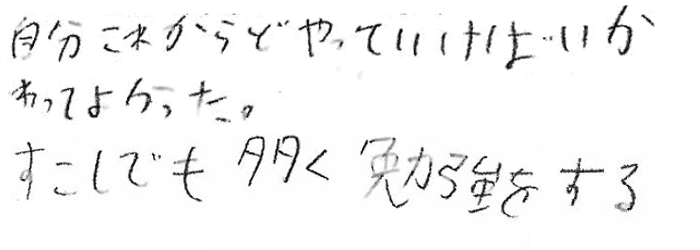 自分これからどやっていけばいいか
わってよかった。
すこしでも多く勉強をする